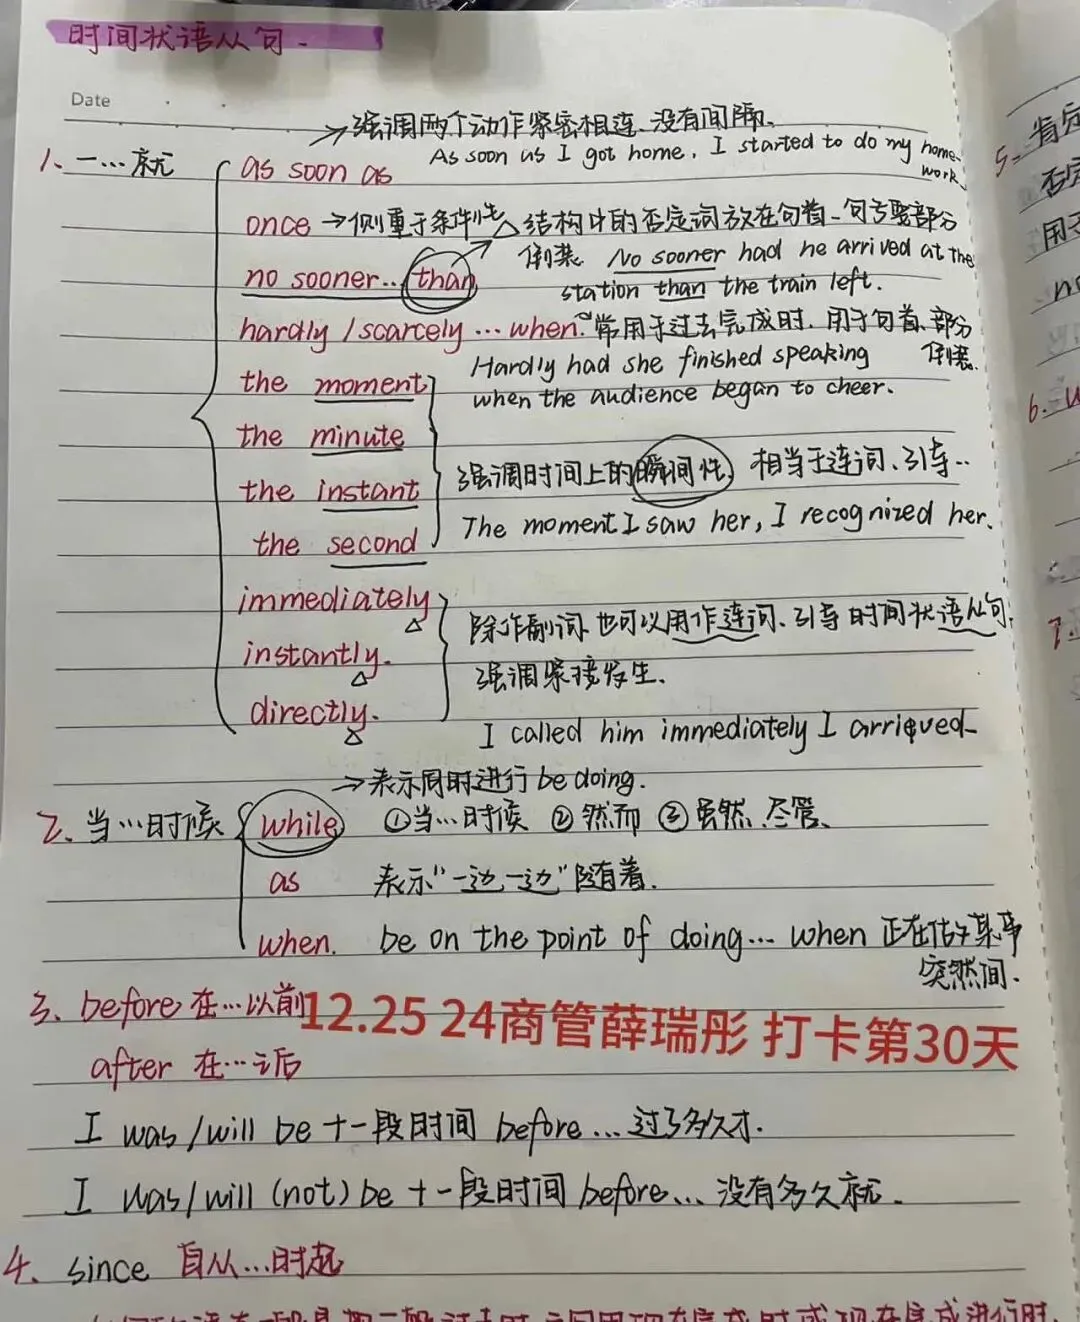 时间状语从句.
Date
→强调两个动作紧密相连、没有间隔、
1、一…就 as soon as As soon as I got home, I started to do my home-
work.
once →侧重于条件性 结构中的否定词放在句首、句子要部分
倒装. No sooner had he arrived at the
no sooner… than station than the train left.
hardly / scarcely … when. 常用于过去完成时. 用于句首、部分
倒装.
the moment Hardly had she finished speaking
when the audience began to cheer.
the minute
强调时间上的瞬间性, 相当于连词、引导…
the instant
The moment I saw her, I recognized her.
the second
immediately 除作副词 也可以用作连词、引导 时间状语从句,
instantly. 强调紧接发生.
directly.
I called him immediately I arriqved
→表示同时进行 be doing.
2、当…时候 while ①当…时候 ②然而 ③虽然、尽管、
as 表示"一边、一边"随着.
when. be on the point of doing… when 正在做某事
突然间.
3、before 在…以前
12.25 24商管薛瑞彤 打卡第30天
after 在…之后
I was/will be 十一段时间 before … 过了多久才.
I was/will (not) be 十一段时间 before… 没有多久就.
4、since 自从…时起
5、肯定
否定
用于
no
6.
7.